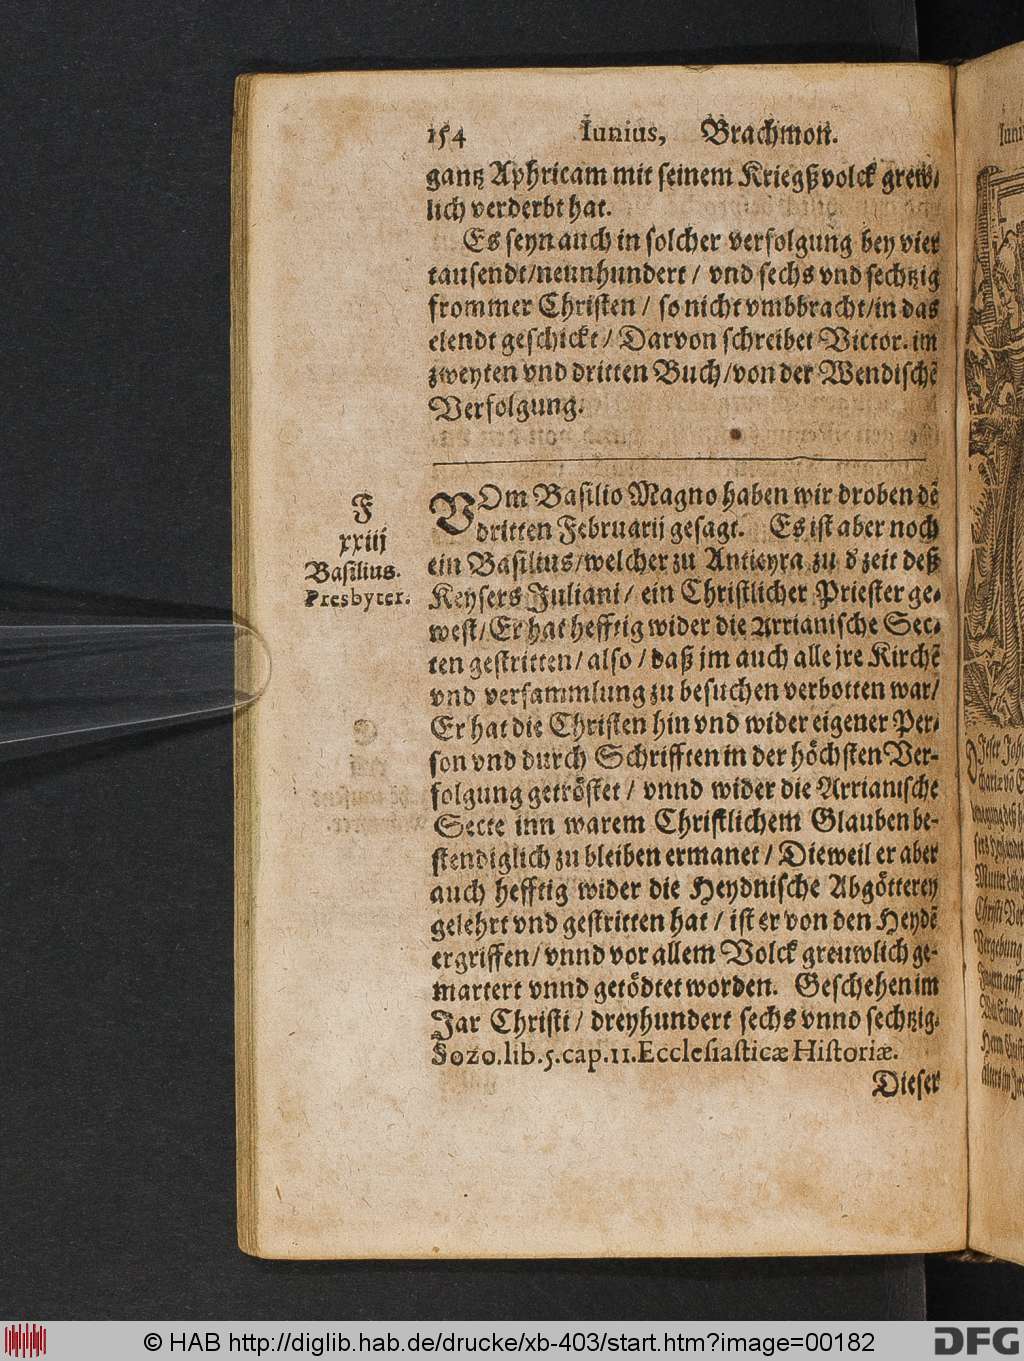 154 Iunius, Brachmon.
gantz Aphricam mit seinem Kriegßvolck grew-
lich verderbt hat.
Es seyn auch in solcher verfolgung bey vier
tausendt/neunhundert / vnd sechs vnd sechtzig
frommer Christen / so nicht vmbbracht/in das
elendt geschickt / Darvon schreibet Victor. im
zweyten vnd dritten Buch/von der Wendischẽ
Verfolgung.
F
xxiij
Basilius.
Presbyter.
VOm Basilio Magno haben wir droben dẽ
dritten Februarij gesagt. Es ist aber noch
ein Basilius/welcher zu Anticyra zu d' zeit deß
Keysers Juliani / ein Christlicher Priester ge-
west/ Er hat hefftig wider die Arrianische Sec-
ten gestritten / also / daß jm auch alle jre Kirchẽ
vnd versammlung zu besuchen verbotten war/
Er hat die Christen hin vnd wider eigener Per-
son vnd durch Schrifften in der höchsten Ver-
folgung getröstet / vnnd wider die Arrianische
Secte inn warem Christlichem Glauben be-
stendiglich zu bleiben ermanet / Dieweil er aber
auch hefftig wider die Heydnische Abgötterey
gelehrt vnd gestritten hat / ist er von den Heydẽ
ergriffen/ vnnd vor allem Volck greuwlich ge-
martert vnnd getödtet worden. Geschehen im
Jar Christi / dreyhundert sechs vnnd sechtzig.
Sozo.lib.5.cap.11.Ecclesiasticæ Historiæ.
Dieser
© HAB http://diglib.hab.de/drucke/xb-403/start.htm?image=00182
DFG